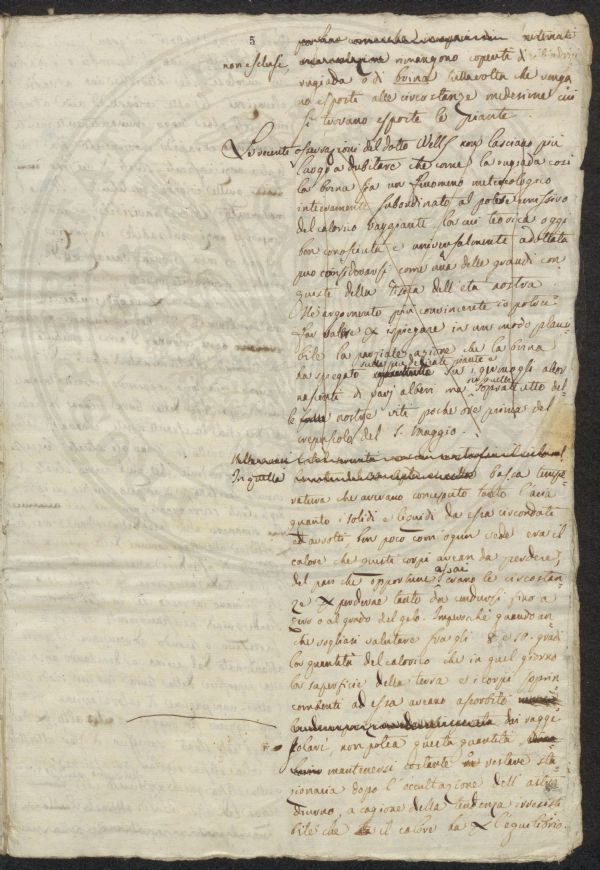 5
non escluse, rimangono coperti di
rugiada o di brina tuttavolta che venga
no esposte alle circostanze medesime cui
si trovano esposte le piante.
Le recenti osservazioni del dotto Wells non lasciano più
luogo a dubitare che come la rugiada così
la brina sia un fenomeno meteorologico
interamente subordinato al potere emissivo
del calorico raggiante, la cui teorica oggi
ben conosciuta e universalmente adottata
può considerarsi come una delle grandi con
quiste della fisica dell'età nostra
Ne argomento più convincente
per spiegare in un modo plau
sibile la parziale azione che la brina
sulle più delicate piante e
ha spiegato su i germogli allor
nascenti di varj alberi ma soprattutto del
le nostre viti poche ore prima del
crepuscolo del 1. Maggio.
In quella bassa tempe
ratura che avevano concepito tanto l'aria
quanto i solidi e liquidi da essa circondati
ed avvolti ben poco com'ognun vede era il
calore che questi corpi avean da perdere;
assai
del pari che opportune erano le circostan
ze per perderne tanto da condursi fino a
zero o al grado del gelo. Imperocchè quando an
che vogliasi valutare fra gli 8 e 10. gradi
la quantità del calorico che in quel giorno
la superficie della terra e i corpi soprin
combenti ad essa aveano assorbito
dai raggi
solari, non potea questa quantità,
mantenersi costante restare sta
zionaria dopo l'occultazione dell'astro
diurno, a cagione della tendenza irresisti
bile che il calore ha per l'equilibrio.